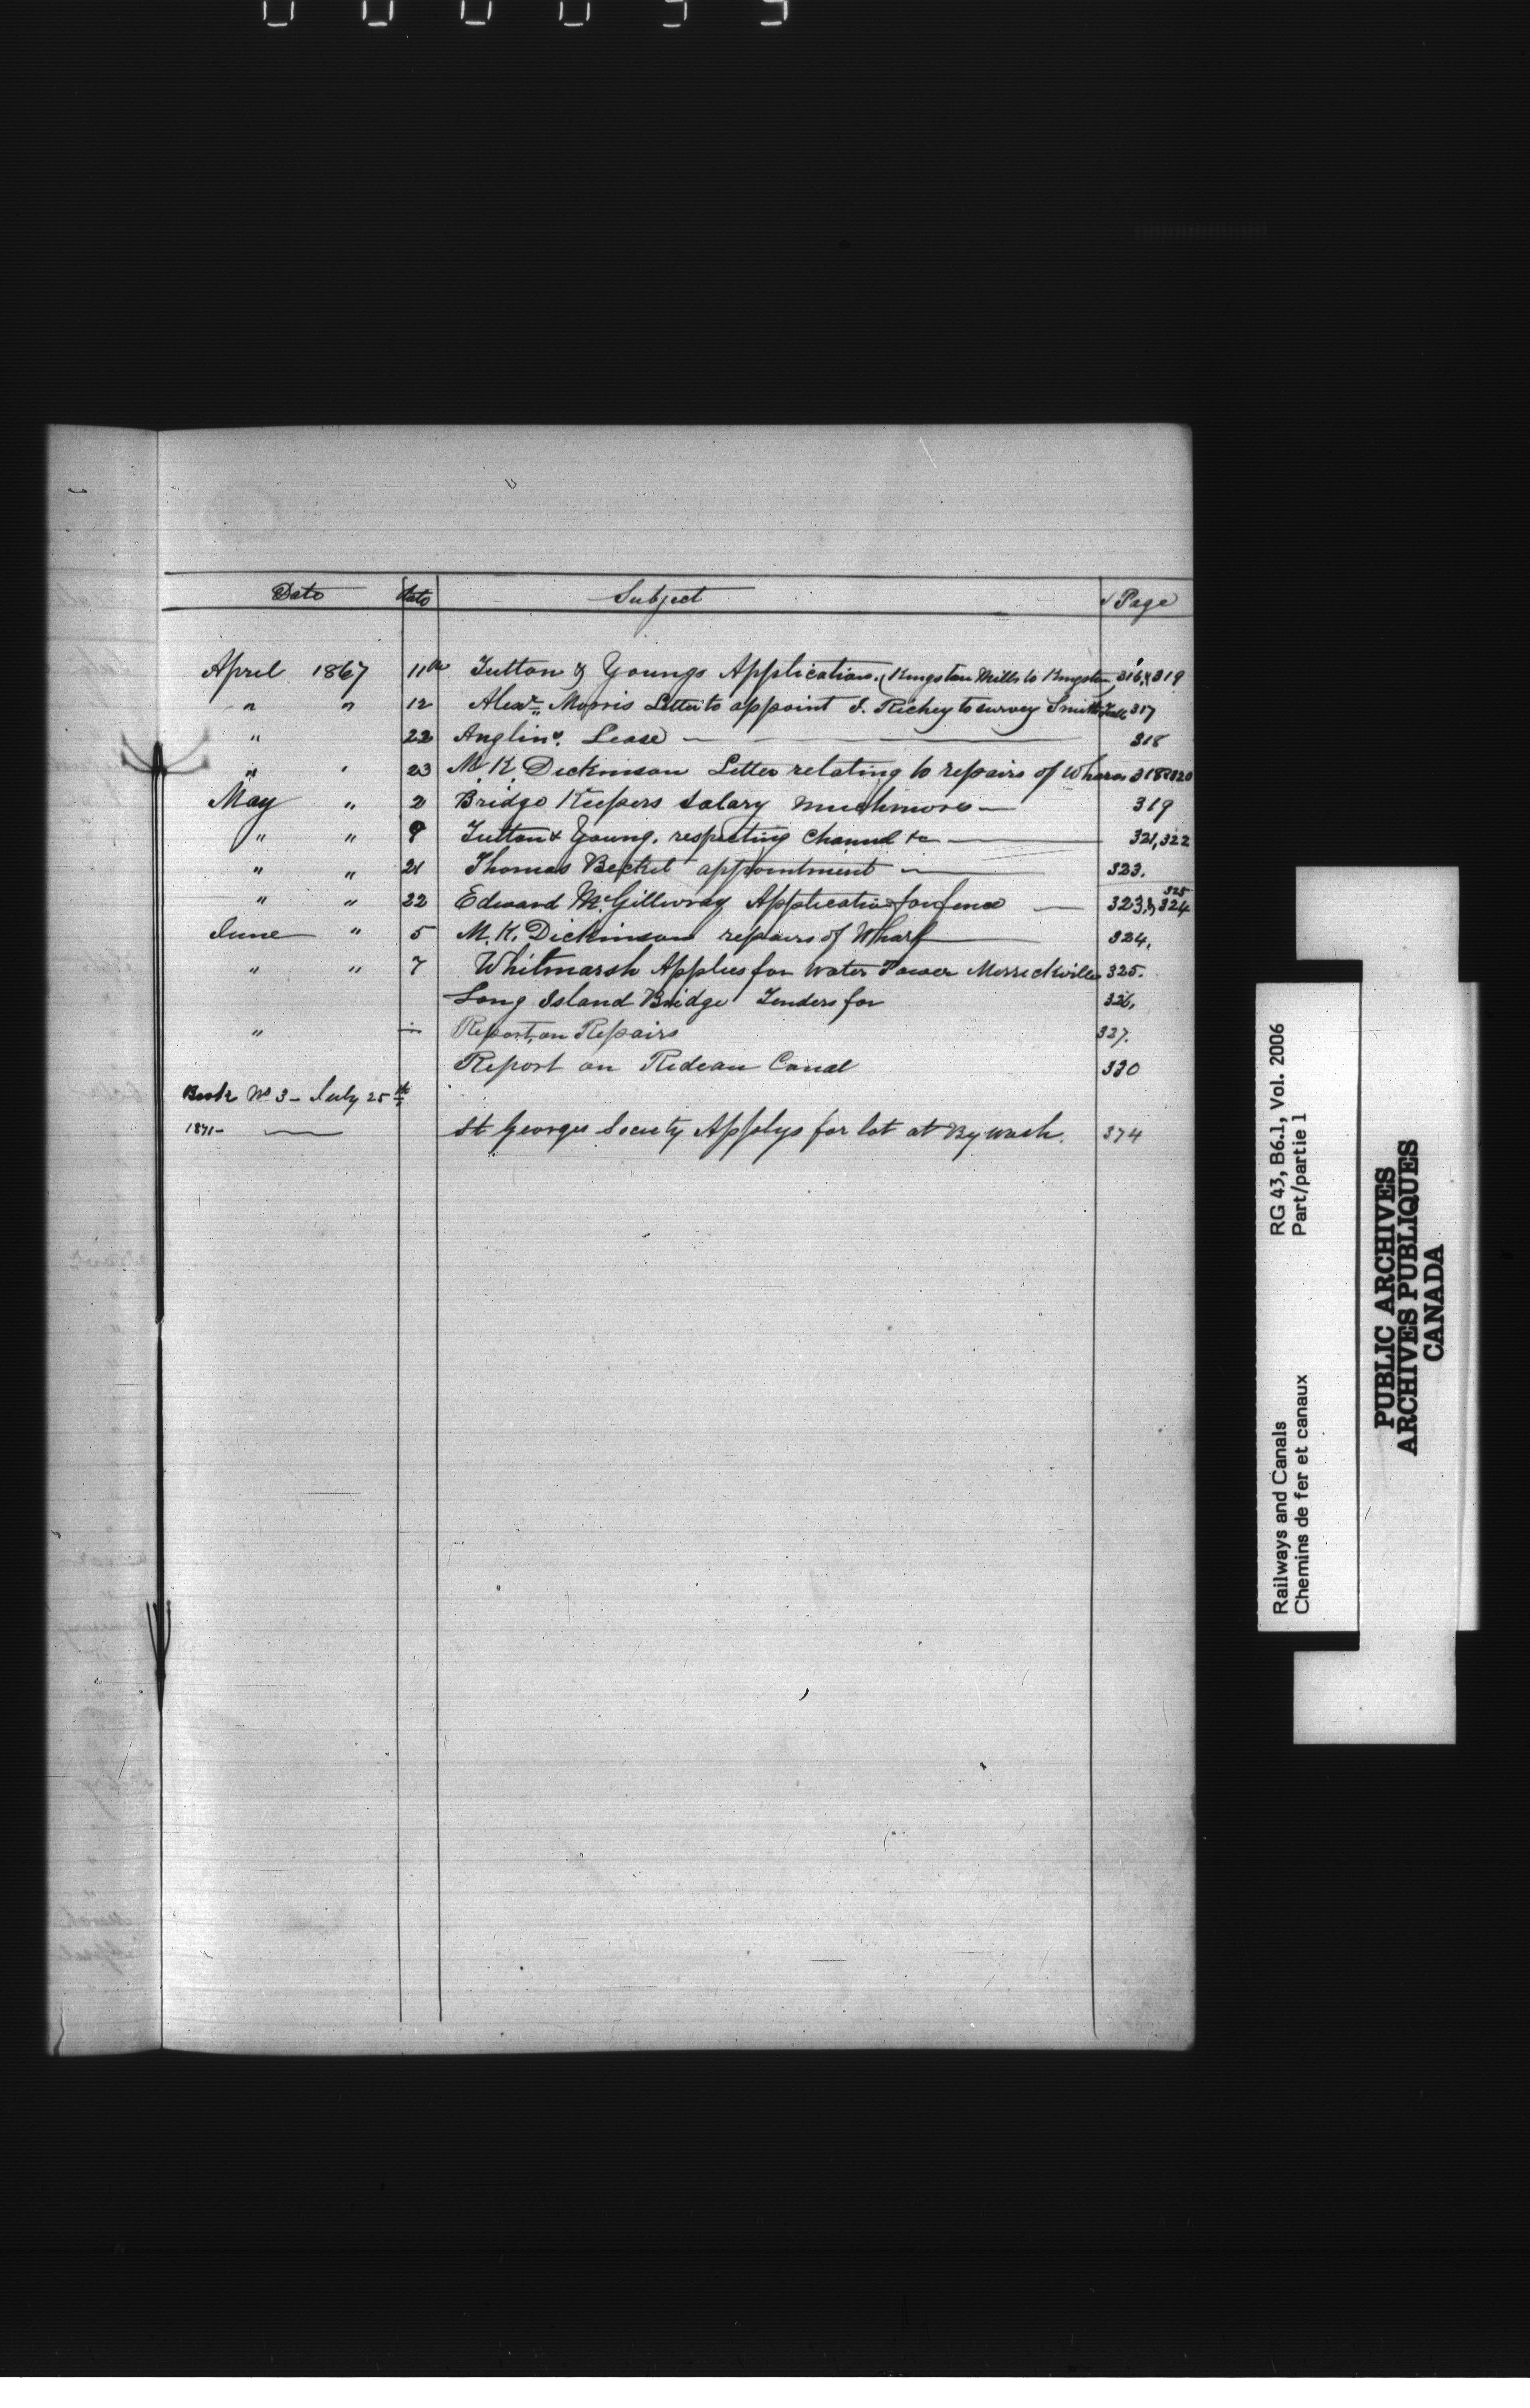 Date Date Subject Page
April 1867 11th Tutton & Youngs Application. (Kingston Mills to Kingston) 316, & 319
" " 12 Alexr. Morris Letter to appoint J. Richey to survey Smiths Falls 317
" 22 Anglins. Lease — 318
" ' 23 M. K. Dickinson Letter relating to repairs of Wharves 318 & 320
May " 2 Bridge Keepers Salary Muchmores — 319
" " 9 Tutton & Young. respecting Channel &c — 321, 322
" " 21 Thomas Becket appointment — 323.
" " 22 Edward McGillivray Application for fence — 323, & 324 325
June " 5 M. K. Dickinson repairs of Wharf — 324.
" " 7 Whitmarsh Applies for Water Power Merrickville 325.
Long Island Bridge Tenders for 326.
" Report, on Repairs 327.
Report on Rideau Canal 330
Book No 3 – July 25th
1871 – — St Georges Society Applys for lot at By Wash. 374
Railways and Canals RG 43, B6.1, Vol. 2006
Chemins de fer et canaux Part/partie 1
PUBLIC ARCHIVES
ARCHIVES PUBLIQUES
CANADA